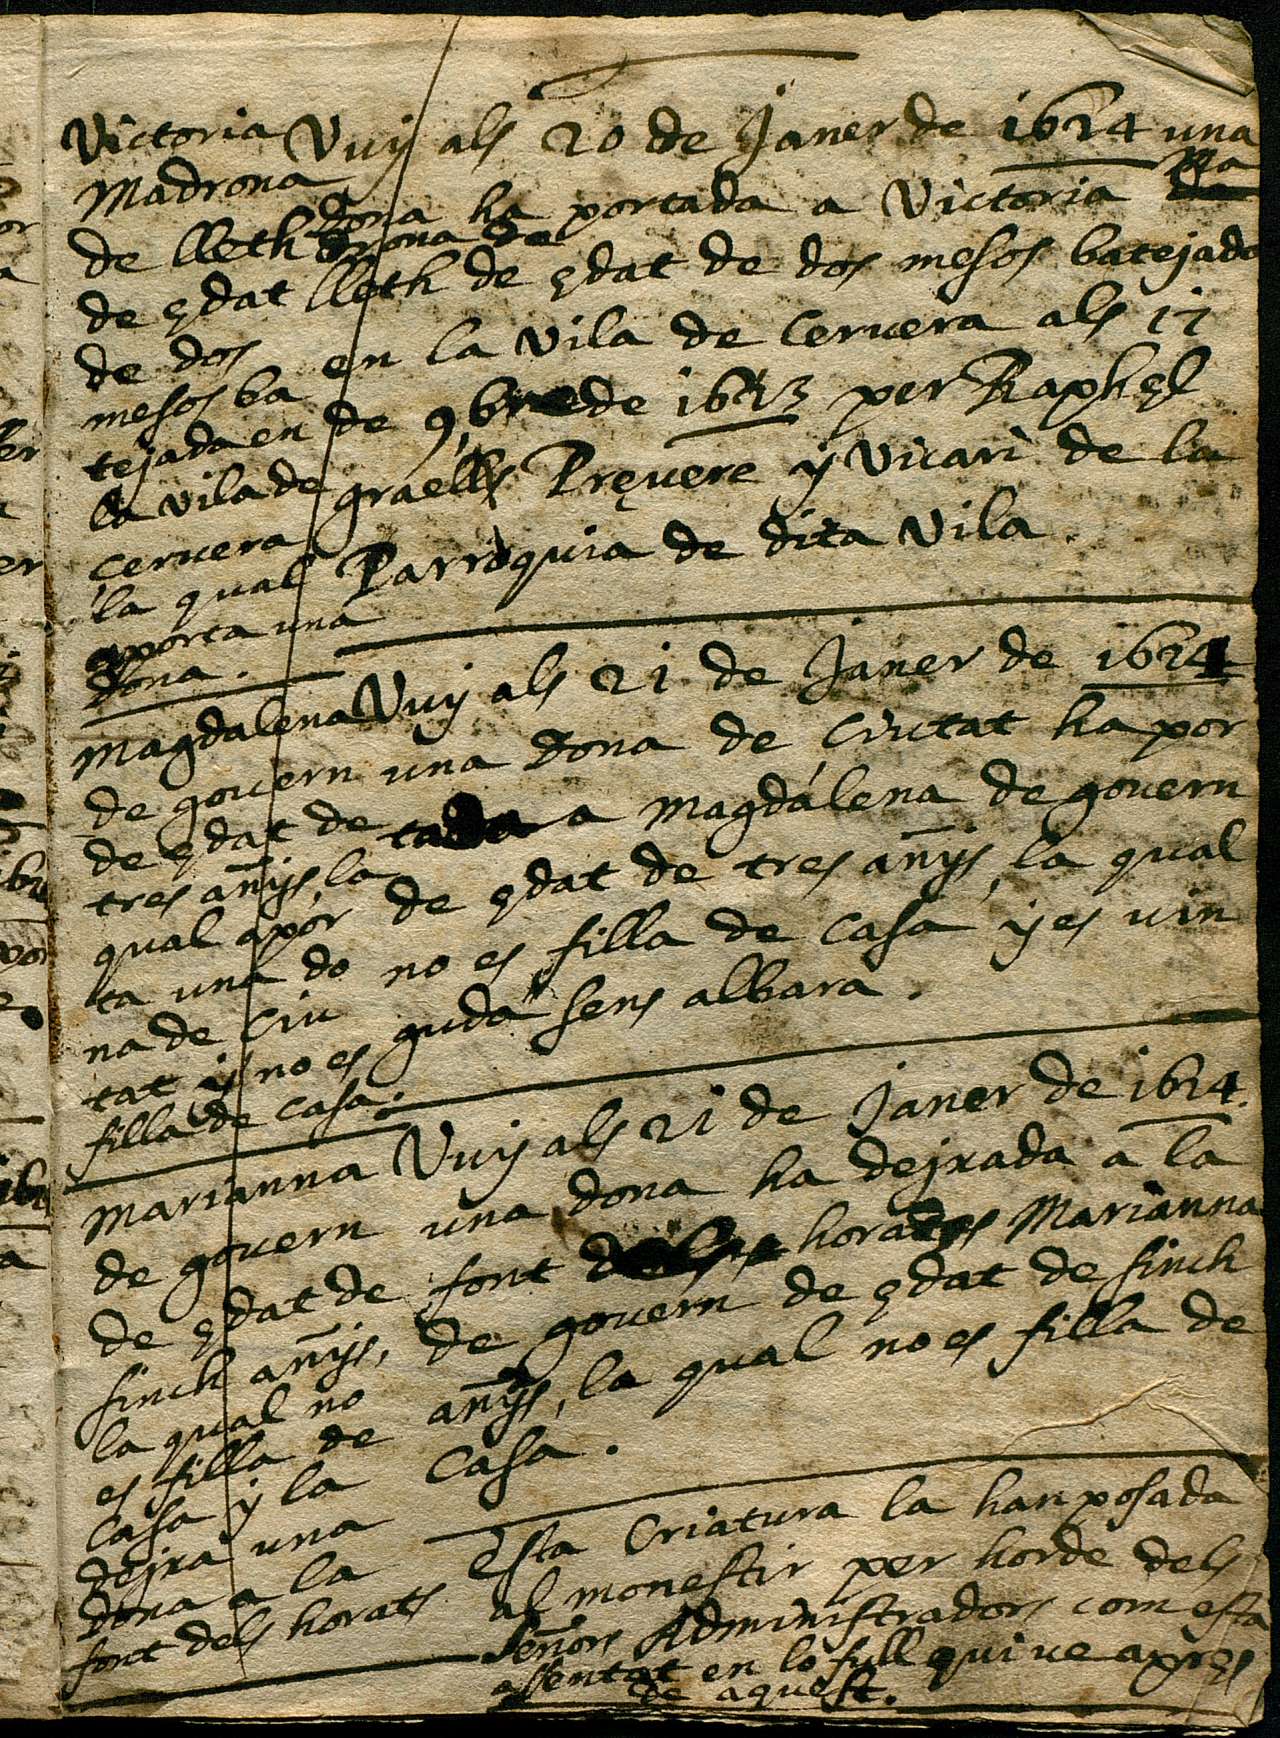 Victoria
Madrona
de lleth
de edat
de dos
mesos ba
tejada en
la vila de
Cervera
la qual
aporta una
dona.
Vuy als 20 de Janer de 1614 una
dona ha portada a Victoria Ma
drona de
lleth de edat de dos mesos batejada
en la vila de Cervera als 17
de 9bre de 1613 per Raphel
graells Prevere y Vicari de la
Parroquia de dita Vila.
Magdalena
de govern
de edat de
tres añys, la
qual apor
ta una do
na de Ciu
tat y no es
filla de casa.
Vuy als 21 de Janer de 1614
una dona de Ciutat ha por
tada a Magdalena de govern
de edat de tres añys, la qual
no es filla de casa y es vin
guda sens albara.
Marianna
de govern
de edat de
sinch añys,
la qual no
es filla de
Casa y la
dejxa una
dona a la
font dels horats
Vuy als 21 de Janer de 1614.
una dona ha dejxada a la
font dels horats Marianna
de govern de edat de sinch
añys, la qual no es filla de
Casa.
Esta Criatura la han posada
al monestir per horde dels
señors Administradors com esta
assentat en lo full qui ve apres
de aquest.